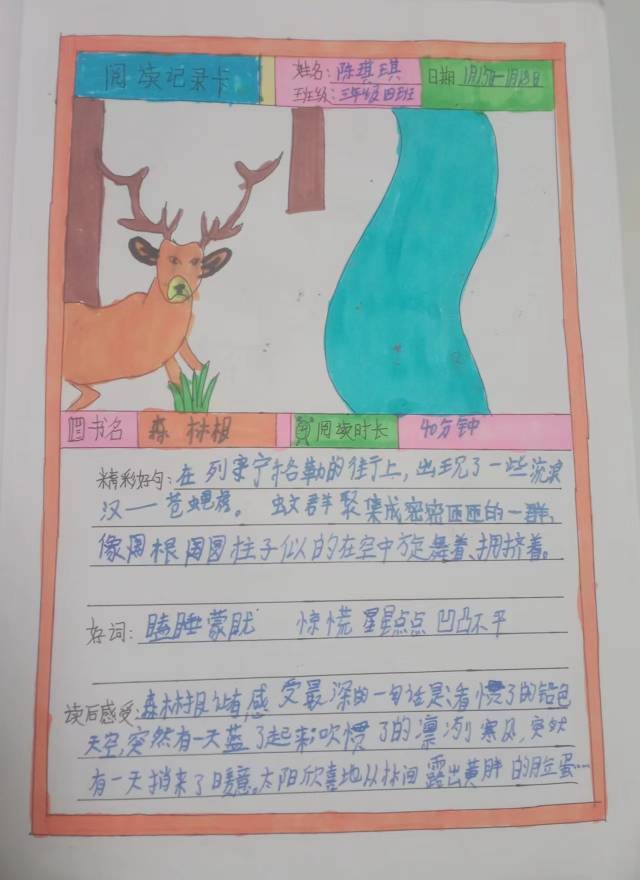 阅读记录卡
姓名：陈琪琪
班级：三年级四班
日期
书名 森林报
阅读时长 40分钟
精彩好句：在列宁格勒的街上，出现了一些流浪
汉——苍蝇。蚊群聚集成密密匝匝的一群，
像圆根圆圆柱子似的在空中旋舞着、拥挤着。
好词：瞌睡蒙眬 惊慌 星星点点 凹凸不平
读后感受：森林报让有感受最深的一句话是：看惯了的铅色
天空，突然有一天蓝了起来；吹惯了的凛冽寒风，突然
有一天捎来了暖意。太阳欣喜地从林间露出黄胖的脸蛋……